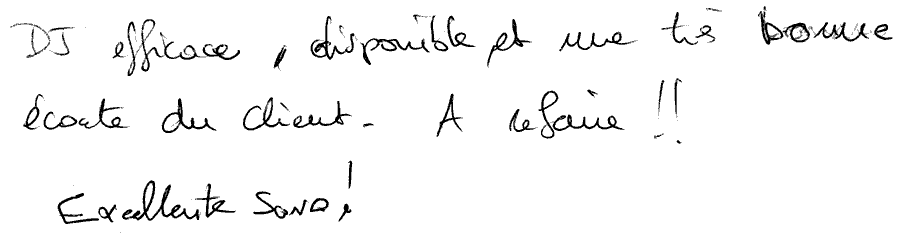 DJ efficace, disponible et une très bonne
écoute du client. A refaire !!
Excellente sono !